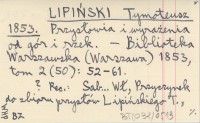 LIPIŃSKI Tymoteusz
1853. Przysłowia i wyrażenia
od gór i rzek. – Biblioteka
Warszawska (Warszawa) 1853,
tom 2 (50): 52-61.
? Rec.: Sab... Wł., Przyczynek
do zbioru przysłów Lipińskiego T.,
BZ